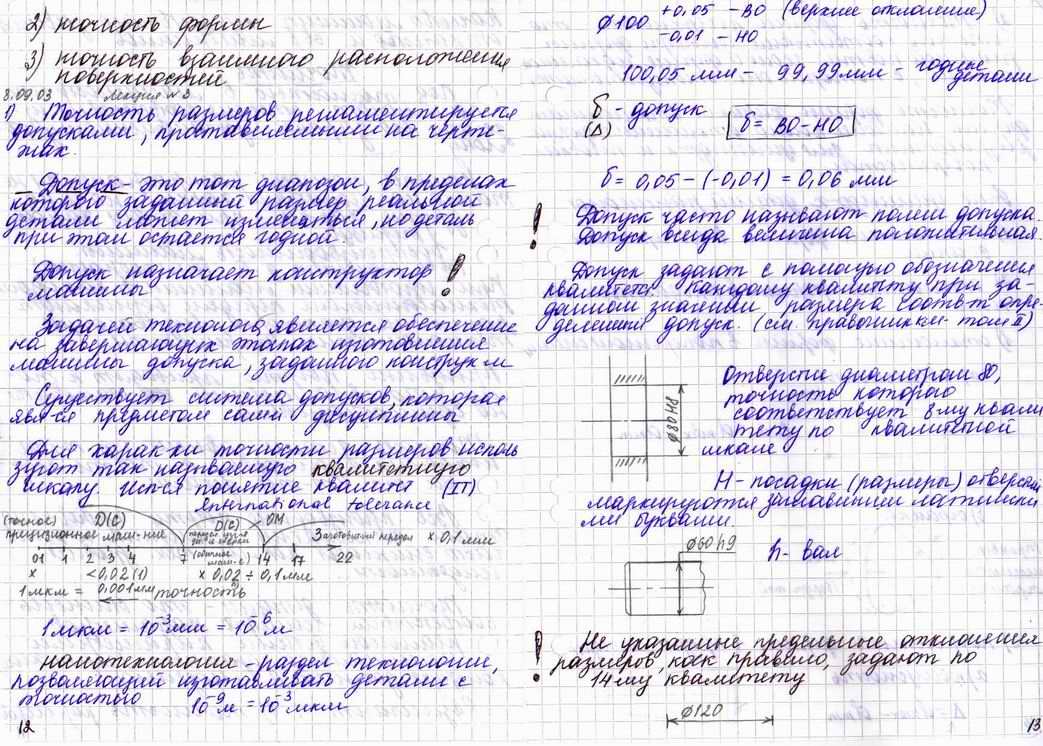 2) точность формы
3) точность взаимного расположения
поверхностей
8.09.03 Лекция №3
1) Точность размеров регламентируется
допусками, проставленными на черте-
жах.
Допуск - это тот диапазон, в пределах
которого заданный размер реальной
детали может изменяться, но деталь
при этом остается годной.
Допуск назначает конструктор !
машины
Задачей технолога является обеспечение
на завершающих этапах изготовления
машины допуска, заданного конструк-м
Существует система допусков, которая
явл-ся предметом самой дисциплины
Для харак-ки точности размеров исполь
зуют так называемую квалитетную
шкалу. Исп-ся понятие квалитет (IT)
International tolerance
(точное) D(C) D(C) ОМ
прецизионное маш-ние Заготовит. передел × 0,1 мм
01 1 2 3 4 7 (обычное маш-е) 14 17 22
× <0,02 (1) × 0,02 ÷ 0,1 мм
1 мкм = 0,001 мм точность
1 мкм = 10⁻³ мм = 10⁻⁶ м
нанотехнология - раздел технологии,
позволяющий изготавливать детали с
точностью 10⁻⁹ м = 10⁻³ мкм
12
Ø100 +0,05 - ВО (верхнее отклонение)
-0,01 - НО
100,05 мм - 99,99 мм - годные
детали
δ - допуск
(Δ) δ = ВО-НО
δ = 0,05 - (-0,01) = 0,06 мм
! Допуск часто называют полем допуска.
Допуск всегда величина положительная.
Допуск задают с помощью обозначения
квалитета. Каждому квалитету при за-
данном значении размера соотв-т опре-
деленный допуск. (см. справочники - том II)
Ø80H8
Отверстие диаметром 80,
точность которого
соответствует 8му квали
тету по квалитетной
шкале
H - посадки (размеры) отверстий
маркируются заглавными латински
ми буквами.
Ø60h9
h - вал
! Не указанные предельные отклонения
размеров, как правило, задают по
14му квалитету
Ø120
13